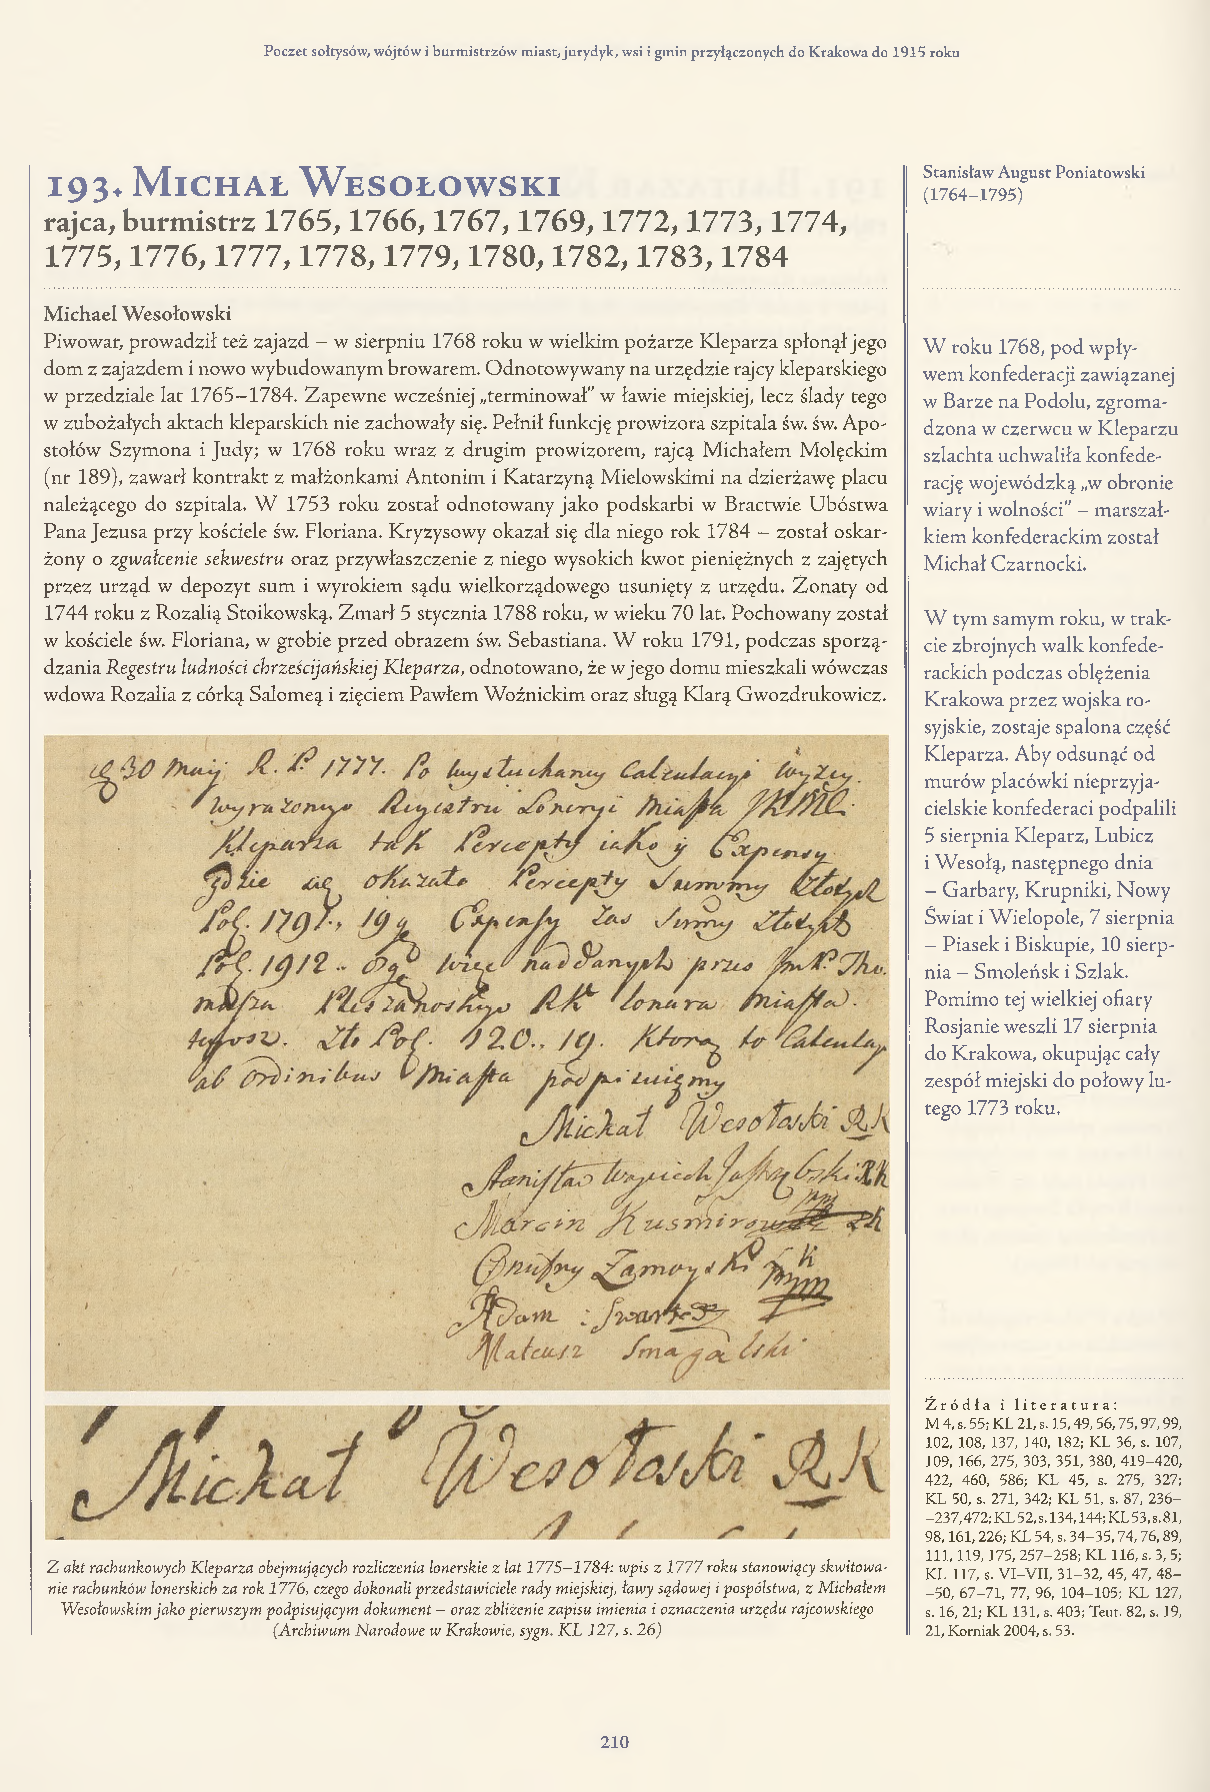 Poczet sołtysów, wójtów i burmistrzów miast, jurydyk, wsi i gmin przyłączonych do Krakowa do 1915 roku
193. Michał Wesołowski
rajca, burmistrz 1765, 1766, 1767, 1769, 1772, 1773, 1774,
1775, 1776, 1777, 1778, 1779, 1780, 1782, 1783, 1784
Michael Wesołowski
Piwowar, prowadził też zajazd – w sierpniu 1768 roku w wielkim pożarze Kleparza spłonął jego
dom z zajazdem i nowo wybudowanym browarem. Odnotowywany na urzędzie rajcy kleparskiego
w przedziale lat 1765–1784. Zapewne wcześniej „terminował” w ławie miejskiej, lecz ślady tego
w zubożałych aktach kleparskich nie zachowały się. Pełnił funkcję prowizora szpitala św. św. Apo-
stołów Szymona i Judy; w 1768 roku wraz z drugim prowizorem, rajcą Michałem Molęckim
(nr 189), zawarł kontrakt z małżonkami Antonim i Katarzyną Mielowskimi na dzierżawę placu
należącego do szpitala. W 1753 roku został odnotowany jako podskarbi w Bractwie Ubóstwa
Pana Jezusa przy kościele św. Floriana. Kryzysowy okazał się dla niego rok 1784 – został oskar-
żony o zgwałcenie sekwestru oraz przywłaszczenie z niego wysokich kwot pieniężnych z zajętych
przez urząd w depozyt sum i wyrokiem sądu wielkorządowego usunięty z urzędu. Żonaty od
1744 roku z Rozalią Stoikowską. Zmarł 5 stycznia 1788 roku, w wieku 70 lat. Pochowany został
w kościele św. Floriana, w grobie przed obrazem św. Sebastiana. W roku 1791, podczas sporzą-
dzania Regestru ludności chrześcijańskiej Kleparza, odnotowano, że w jego domu mieszkali wówczas
wdowa Rozalia z córką Salomeą i zięciem Pawłem Woźnickim oraz sługą Klarą Gwozdrukowicz.
30 Maij R. P. 1777. Po wysłuchaney Calculacyi wyżey
wyrażonego Regestru Loneryi Miasta JKMCi
Kleparza tak Percepty iako y Expensy
gdzie się okazało Percepty Summy Złotych
Pol. 1791., 19 Expensy zas Summy Złotych
Pol. 1912.. więc naddanych przes JmP. Tho-
masza RK lonara Miasta
tegosz. Zło Pol. 120., 19. Ktorą to Calculay
ab Ordinibus Miasta podpisuięmy
Michał Wesołoski RK
Stanisław Woyciech Jastrzębski RK
Marcin Kusmirowicz RK
Onufry Zamoyski K
Adam
Mateusz Smagalski
Michał Wesołoski RK
Z akt rachunkowych Kleparza obejmujących rozliczenia lonerskie z lat 1775–1784: wpis z 1777 roku stanowiący skwitowa-
nie rachunków lonerskich za rok 1776, czego dokonali przedstawiciele rady miejskiej, ławy sądowej i pospólstwa, z Michałem
Wesołowskim jako pierwszym podpisującym dokument – oraz zbliżenie zapisu imienia i oznaczenia urzędu rajcowskiego
(Archiwum Narodowe w Krakowie, sygn. KL 127, s. 26)
Stanisław August Poniatowski
(1764–1795)
W roku 1768, pod wpły-
wem konfederacji zawiązanej
w Barze na Podolu, zgroma-
dzona w czerwcu w Kleparzu
szlachta uchwaliła konfede-
rację wojewódzką „w obronie
wiary i wolności” – marszał-
kiem konfederackim został
Michał Czarnocki.
W tym samym roku, w trak-
cie zbrojnych walk konfede-
rackich podczas oblężenia
Krakowa przez wojska ro-
syjskie, zostaje spalona część
Kleparza. Aby odsunąć od
murów placówki nieprzyja-
cielskie konfederaci podpalili
5 sierpnia Kleparz, Lubicz
i Wesołą, następnego dnia
– Garbary, Krupniki, Nowy
Świat i Wielopole, 7 sierpnia
– Piasek i Biskupie, 10 sierp-
nia – Smoleńsk i Szlak.
Pomimo tej wielkiej ofiary
Rosjanie weszli 17 sierpnia
do Krakowa, okupując cały
zespół miejski do połowy lu-
tego 1773 roku.
Źródła i literatura:
M 4, s. 55; KL 21, s. 15, 49, 56, 75, 97, 99,
102, 108, 137, 140, 182; KL 36, s. 107,
109, 166, 275, 303, 351, 380, 419–420,
422, 460, 586; KL 45, s. 275, 327;
KL 50, s. 271, 342; KL 51, s. 87, 236–
–237, 472; KL 52, s. 134, 144; KL 53, s. 81,
98, 161, 226; KL 54, s. 34–35, 74, 76, 89,
111, 119, 175, 257–258; KL 116, s. 3, 5;
KL 117, s. VI–VII, 31–32, 45, 47, 48–
–50, 67–71, 77, 96, 104–105; KL 127,
s. 16, 21; KL 131, s. 403; Teut. 82, s. 19,
21, Korniak 2004, s. 53.
210